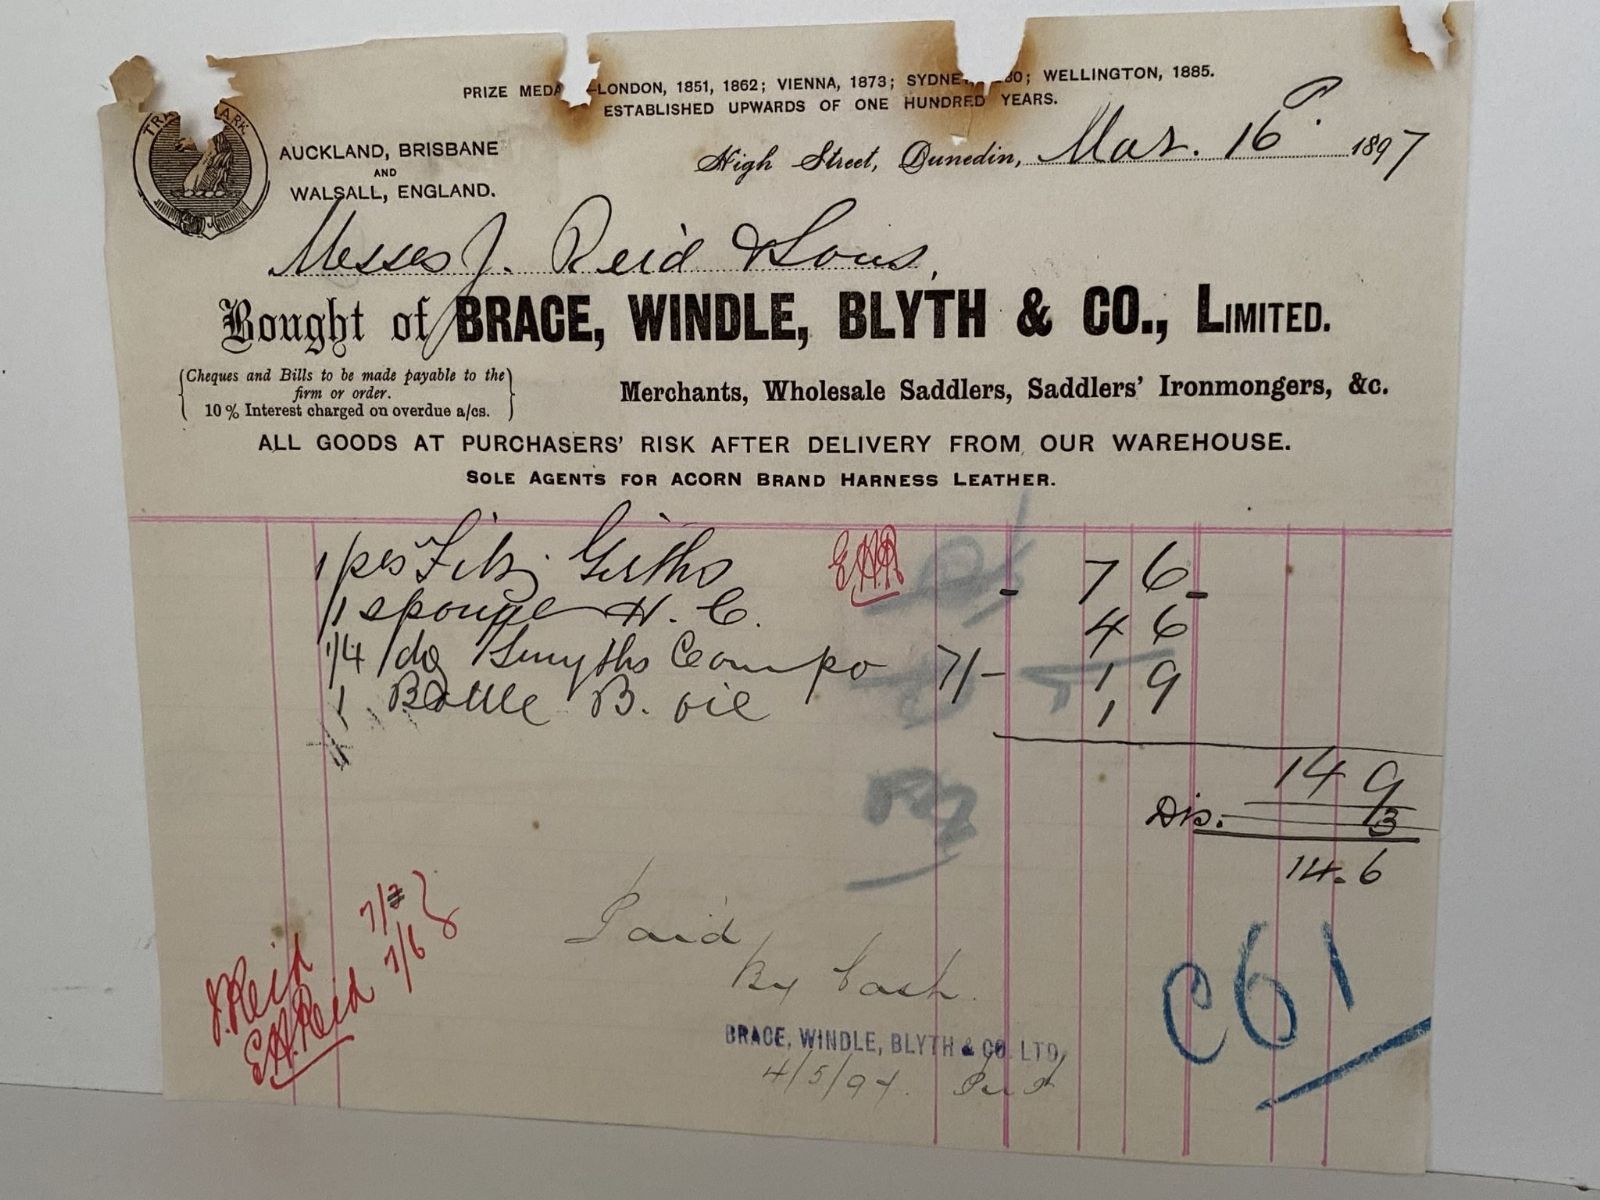 PRIZE MEDA —LONDON, 1851, 1862; VIENNA, 1873; SYDNE 80; WELLINGTON, 1885.
ESTABLISHED UPWARDS OF ONE HUNDRED YEARS.
TRA ARK
AUCKLAND, BRISBANE
AND
WALSALL, ENGLAND.
High Street, Dunedin, Mar. 16 1897
Messrs J. Reid & Sons,
Bought of BRACE, WINDLE, BLYTH & CO., LIMITED.
Cheques and Bills to be made payable to the
firm or order.
10% Interest charged on overdue a/cs.
Merchants, Wholesale Saddlers, Saddlers' Ironmongers, &c.
ALL GOODS AT PURCHASERS' RISK AFTER DELIVERY FROM OUR WAREHOUSE.
SOLE AGENTS FOR ACORN BRAND HARNESS LEATHER.
1 prs Fitz Girths E.A.R - 7 6 -
1 sponge H. C. 4 6
1/4 dz Smyths Compo 7/- 1 9
1 Bottle B. oil 1
14 9
Dis. 3
14.6
J. Reid 7/
E.A. Reid 7/6
Paid
By Cash.
BRACE, WINDLE, BLYTH & CO. LTD.
4/5/97.
C61